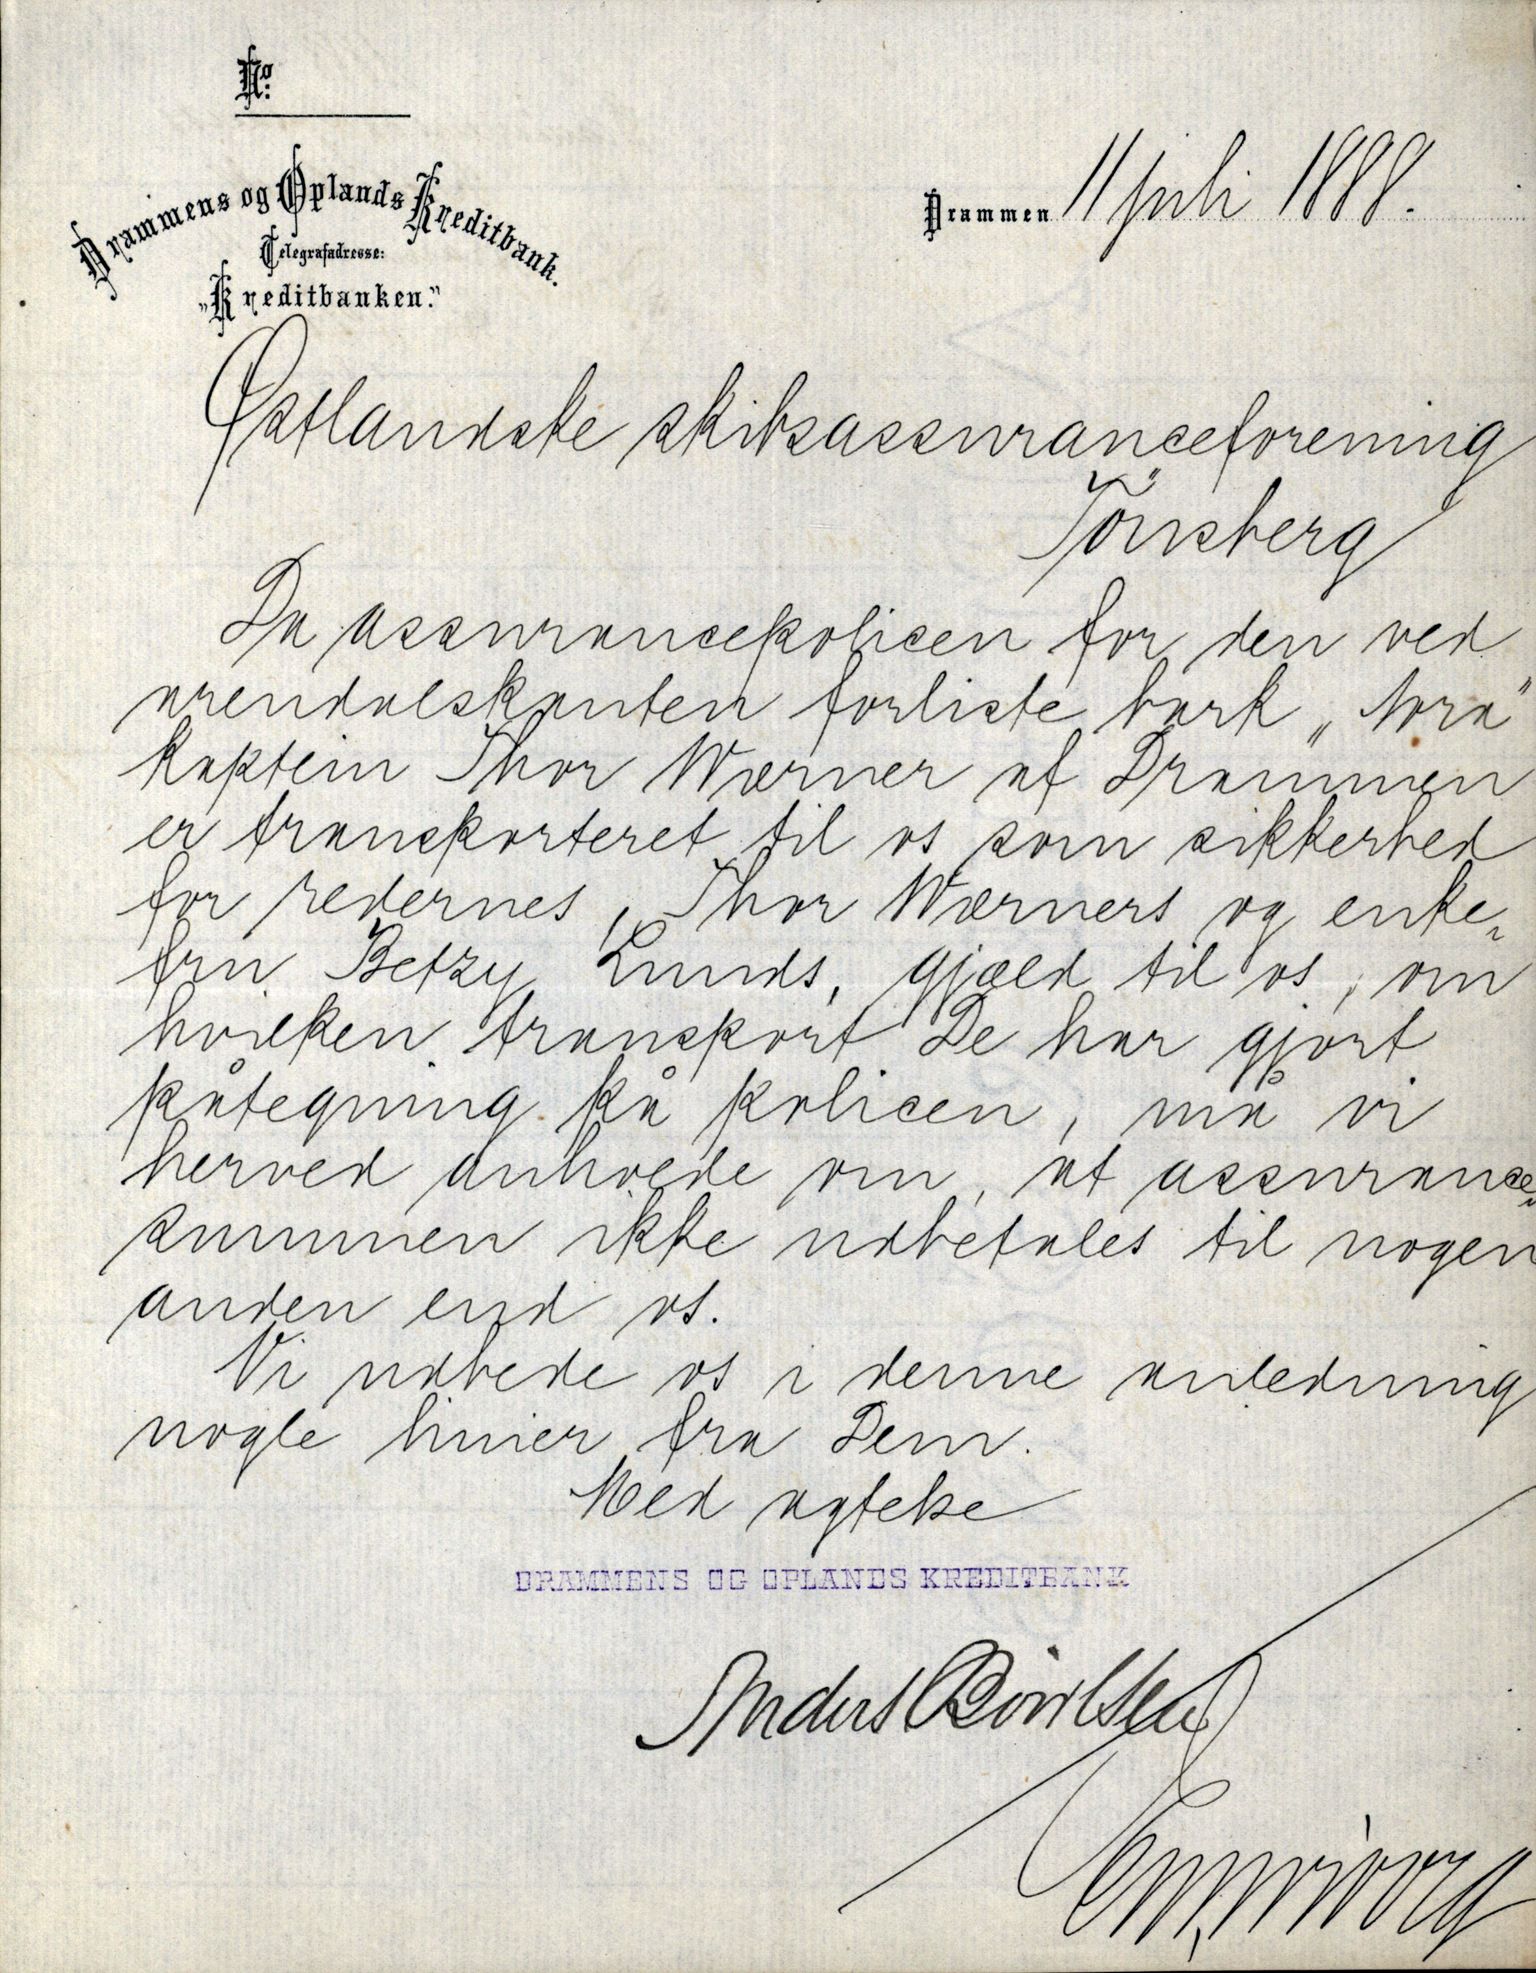 No:
Drammens og Oplands Kreditbank.
Telegrafadresse:
„Kreditbanken."
Drammen 11 juli 1888.
Østlandske skibsassuranceforening
Tönsberg
Da assurancepolicen for den ved
arendalskanten forliste bark „Nora"
kaptein Thor Wærner af Drammen
er transporteret til os som sikkerhed
for redernes, Thor Wærners og enke-
fru Betzy Lunds, gjæld til os, om
hvilken transport De har gjort
påtegning på policen, må vi
herved anhoede om, at assurance-
summen ikke udbetales til nogen
anden end os.
Vi udbede os i denne anledning
nogle linier fra Dem.
Med agtelse
DRAMMENS OG OPLANDS KREDITBANK
Anders